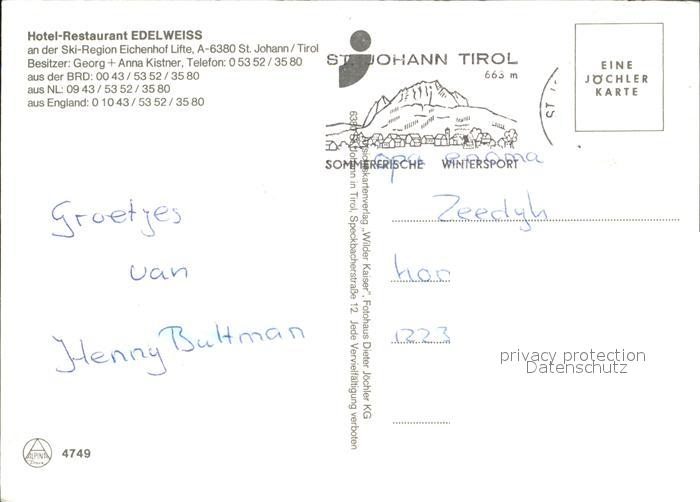 Hotel-Restaurant EDELWEISS
an der Ski-Region Eichenhof Lifte, A-6380 St. Johann/Tirol
Besitzer: Georg + Anna Kistner, Telefon: 0 53 52 / 35 80
aus der BRD: 00 43 / 53 52 / 35 80
aus NL: 09 43 / 53 52 / 35 80
aus England: 0 10 43 / 53 52 / 35 80
ST. JOHANN TIROL
663 m
SOMMERFRISCHE WINTERSPORT
ST
EINE
JÖCHLER
KARTE
opa en oma
Groetjes
van
Henny Bultman
"Wilder Kaiser", Fotohaus Dieter Jöchler KG
in Tirol, Speckbacherstraße 12. Jede Vervielfältigung verboten
1223
privacy protection
Datenschutz
ALPINA
4749